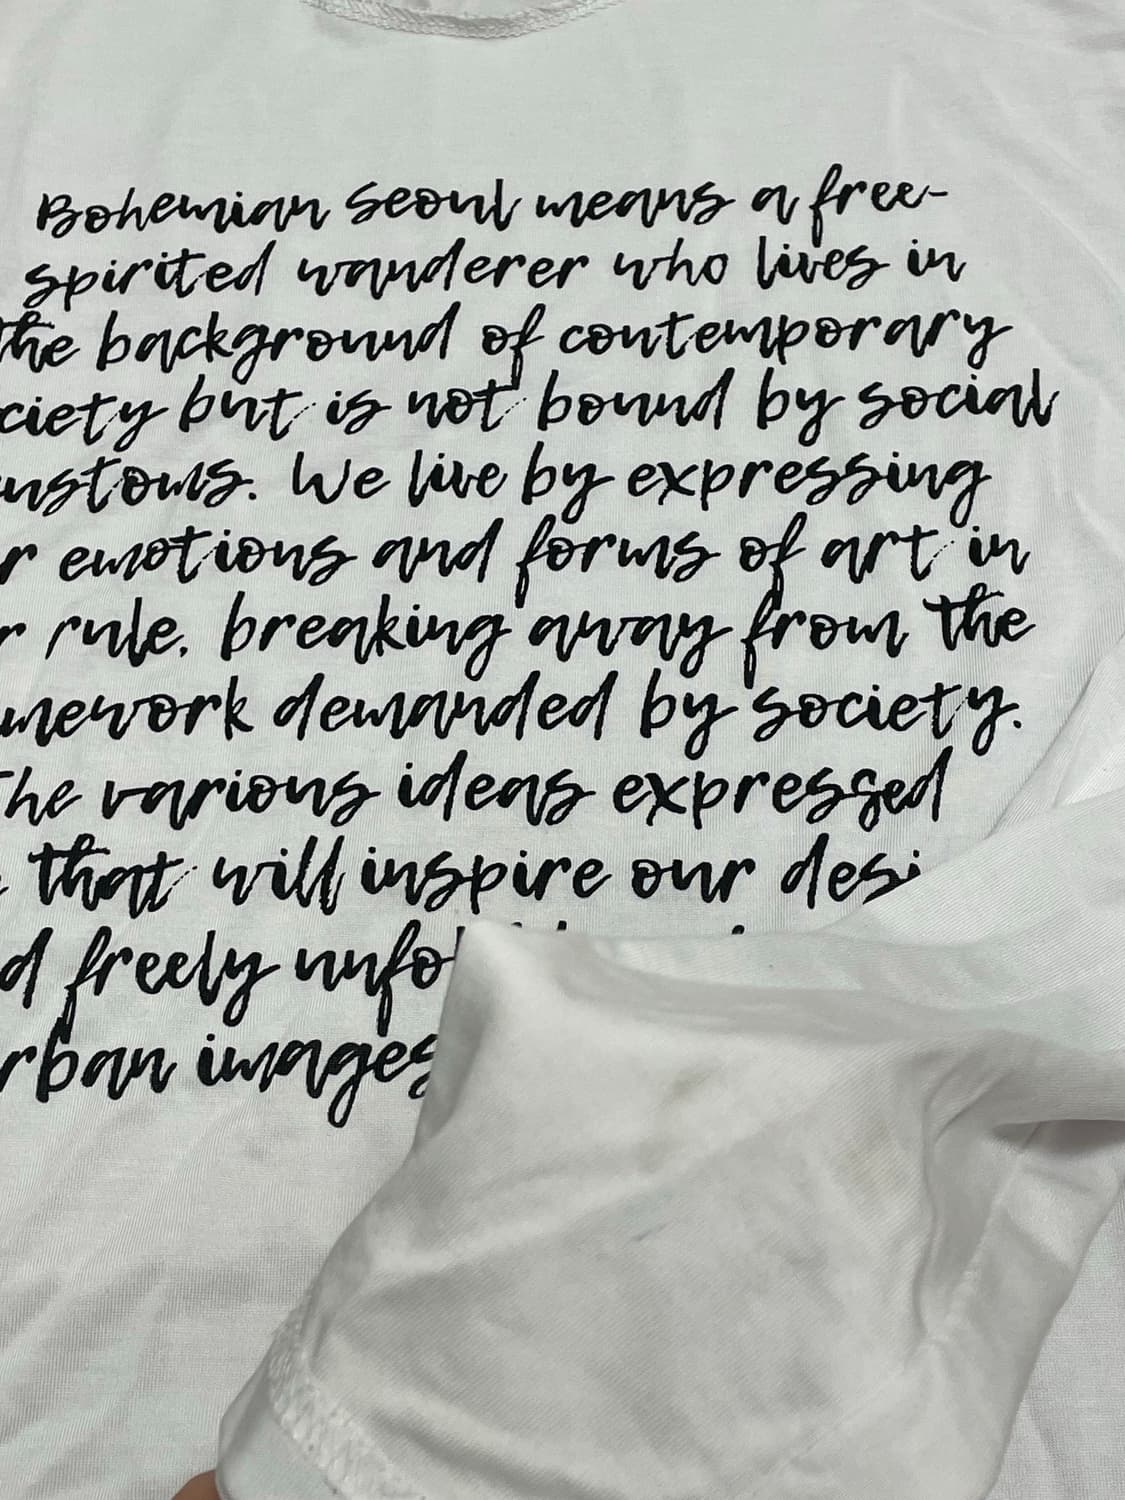 Bohemian Seoul means a free-
spirited wanderer who lives in
the background of contemporary
ciety but is not bound by social
ustoms. We live by expressing
r emotions and forms of art in
r rule. breaking away from the
mework demanded by society.
The various ideas expressed
that will inspire our desi
d freely unfo
rban images